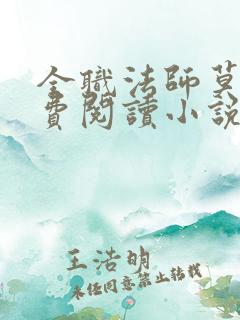 全职法师莫
費閱讀小說
王浩明
未经同意禁止转载